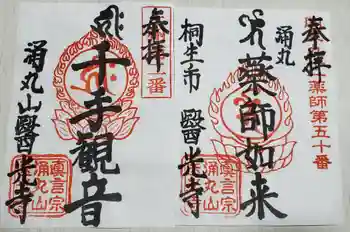 奉拝
薬師第五十番
涌丸
薬師如来
桐生市
醫光寺
真言宗
涌丸山
奉拝
番
千手観音
涌丸山醫光寺
真言宗
涌丸山